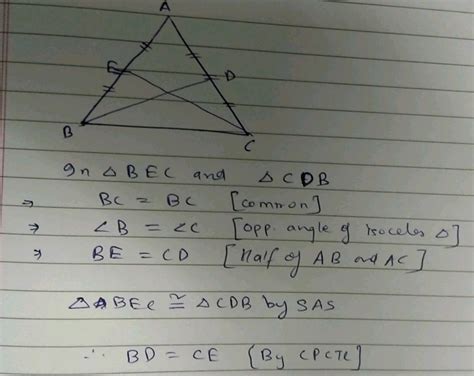 A
E
D
B
C
In △ BEC and △ CDB
⇒ BC = BC [common]
⇒ ∠B = ∠C [opp. angle of isoceles △]
⇒ BE = CD [Half of AB and AC]
△ BEC ≅ △ CDB by SAS
∴ BD = CE [By CPCTC]